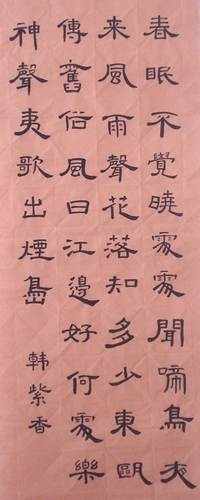 春眠不覺曉處處聞啼鳥夜
来風雨聲花落知多少東甌
傳舊俗風日江邊好何處樂
神聲夷歌出煙島
韩紫香